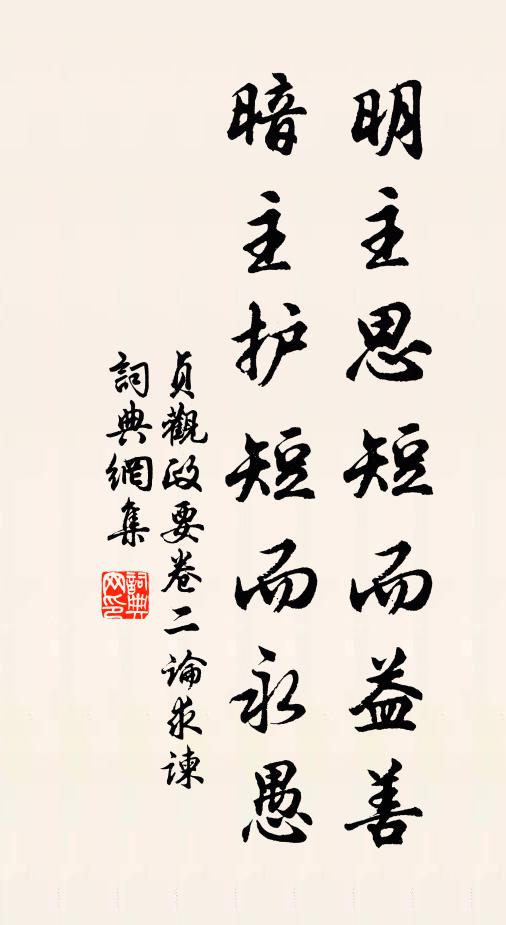 明主思短而益善
暗主护短而永愚
貞觀政要卷二論求諫
詞典網集
詞典
网印